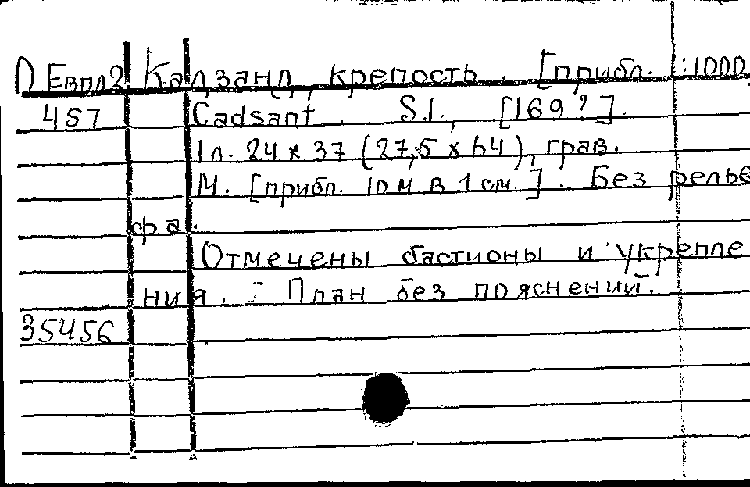 О Евпл2 Кадзанд, крепость. [прибл. 1:1000,
457 Cadsant. S.l., [169?].
1 л. 24 x 37 (27,5 x 64), грав.
М. [прибл. 10 м в 1 см.]. Без релье
фа.
Отмечены бастионы и укрепле
ния. План без пояснений.
35456